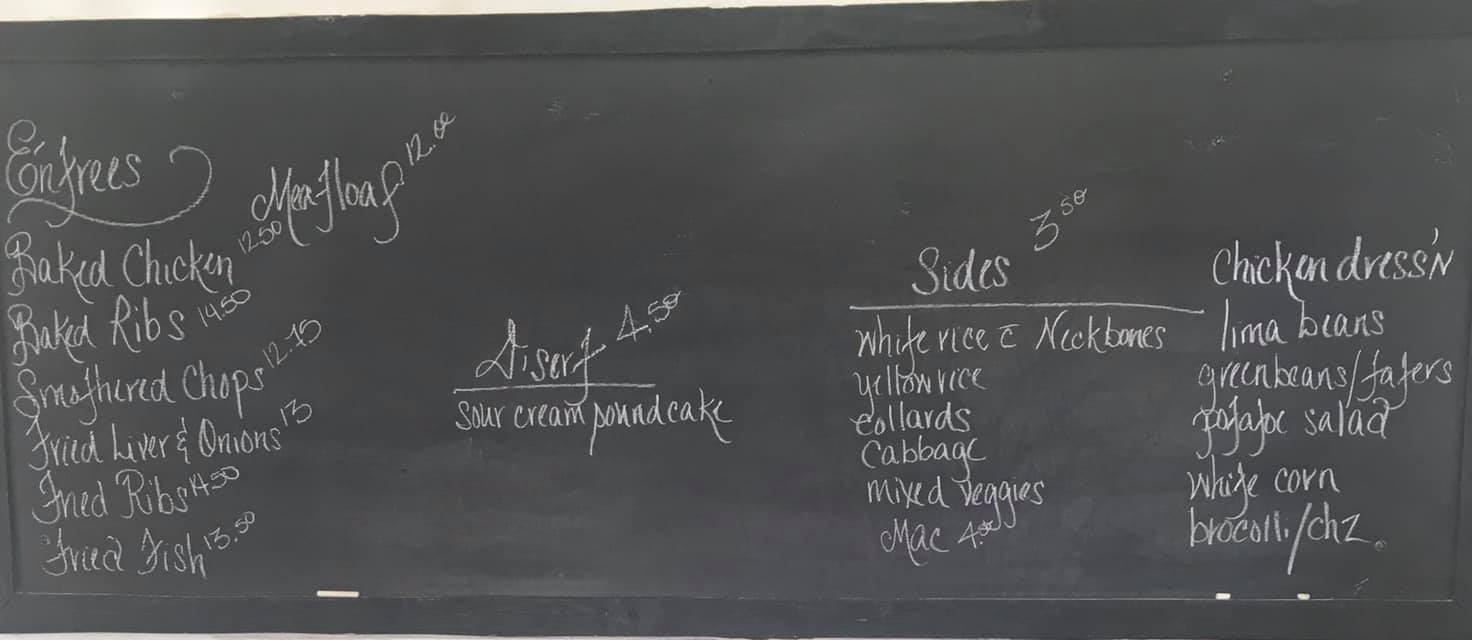 Entrees
Meatloaf 12.00
Baked Chicken 12.50
Baked Ribs 14.50
Smothered Chops 12.75
Fried Liver & Onions 13
Fried Ribs 14.50
Fried Fish 13.50
Disert 4.50
sour cream poundcake
Sides 3.50
white rice c̄ Neckbones
yellow rice
collards
Cabbage
mixed veggies
Mac 4.00
Chicken dress'N
lima beans
greenbeans/taters
potatoe salad
white corn
brocolli/chz.